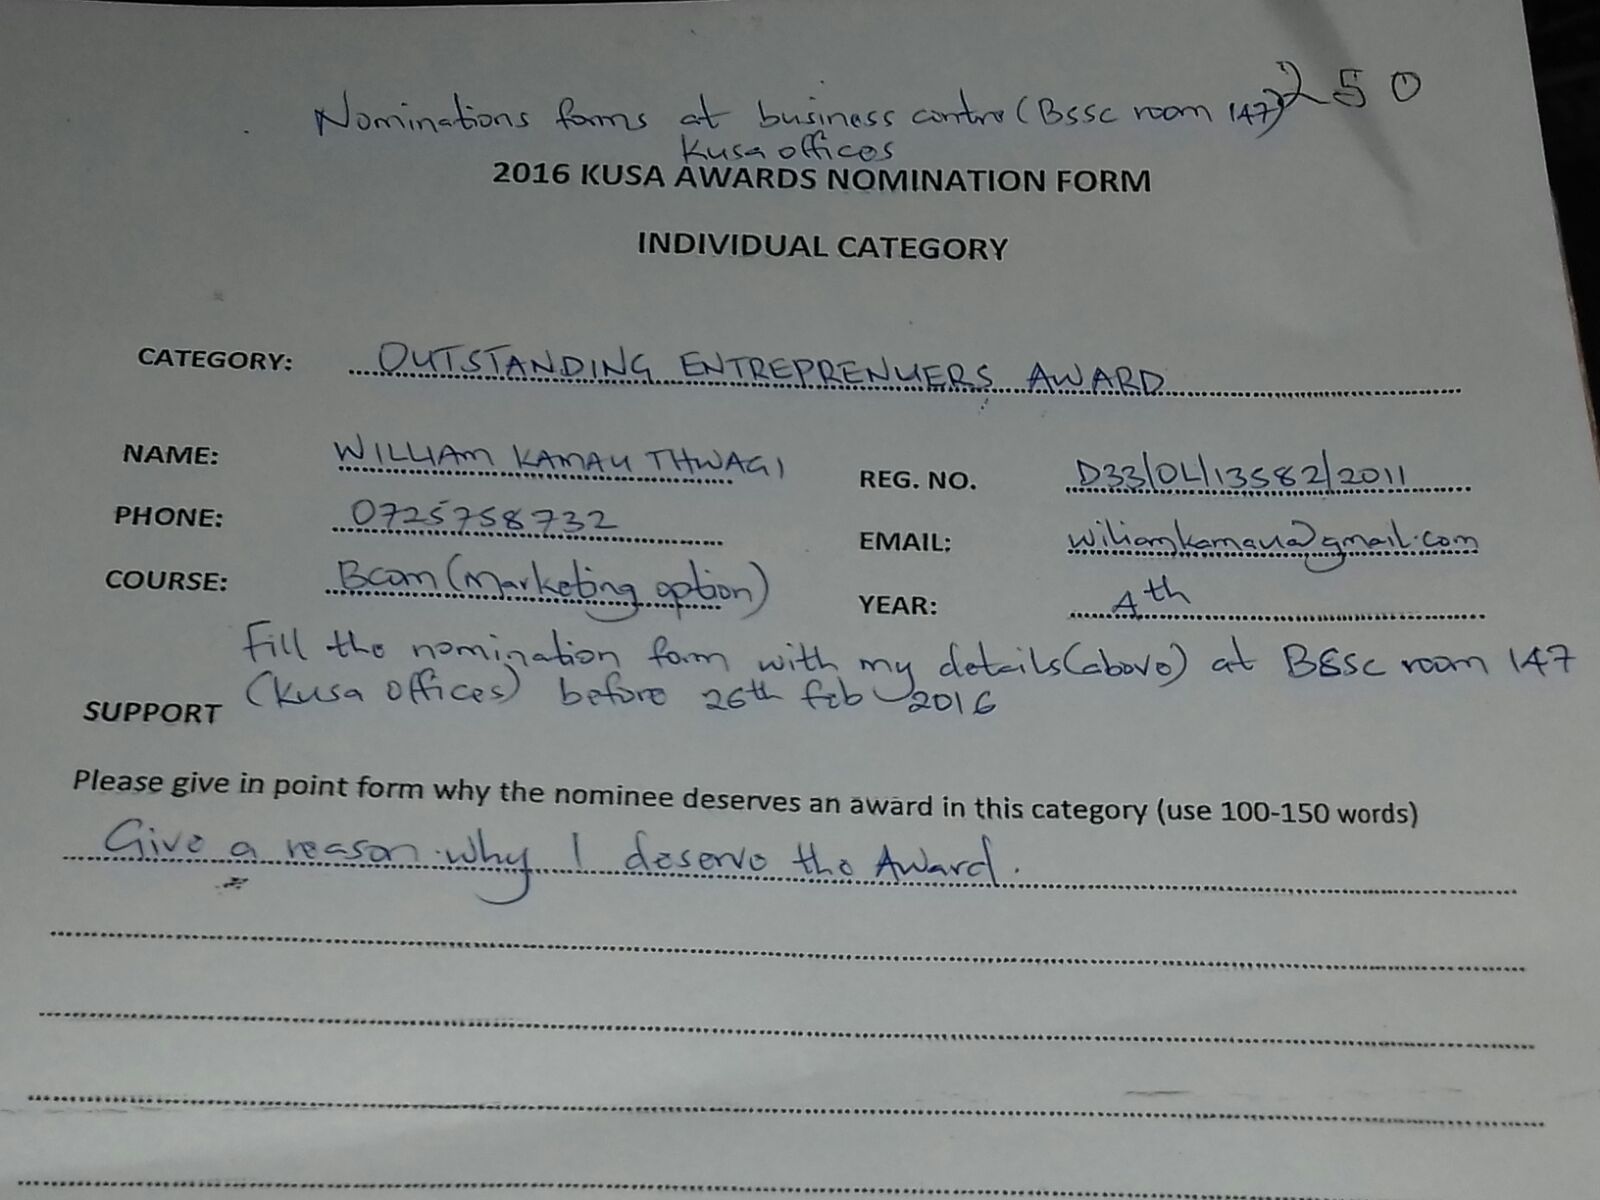 Nominations forms at business centre (Bssc room 147) 250
Kusa offices
2016 KUSA AWARDS NOMINATION FORM
INDIVIDUAL CATEGORY
CATEGORY: OUTSTANDING ENTREPRENUERS AWARD
NAME: WILLIAM KAMAU THWAGI REG. NO. D33/OL/13582/2011
PHONE: 0725758732 EMAIL: wiliamkamau@gmail.com
COURSE: Bcom (Marketing option) YEAR: 4th
Fill the nomination form with my details (above) at BSSC room 147
(Kusa offices) before 26th feb 2016
SUPPORT
Please give in point form why the nominee deserves an award in this category (use 100-150 words)
Give a reason why I deserve the Award.